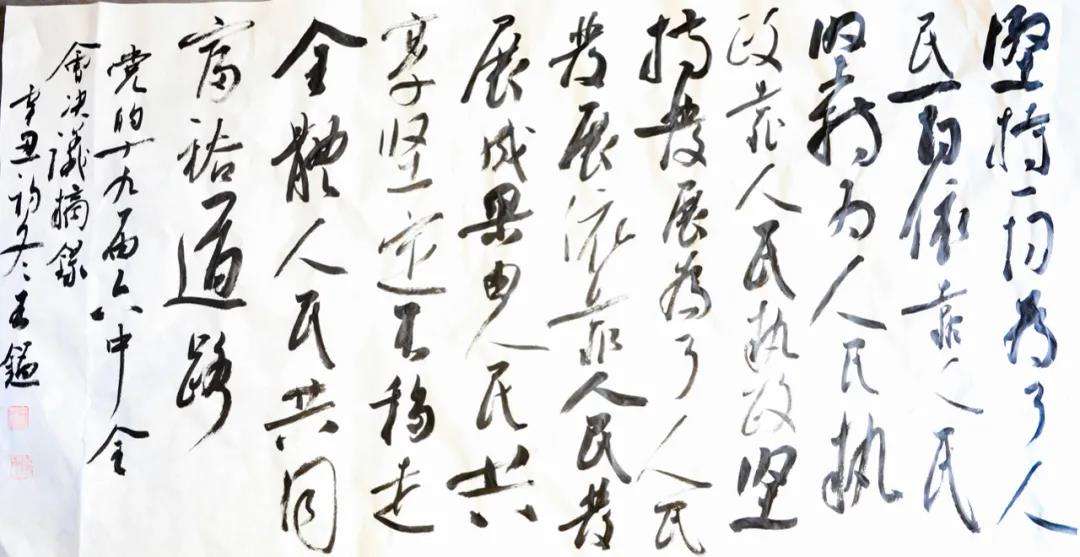 堅持一切為了人
民一切依靠人民
坚持为人民执
政靠人民执政坚
持發展為了人民
發展依靠人民發
展成果由人民共
享坚定不移走
全體人民共同
富裕道路
党的十九届六中全
會决議摘錄
辛丑初冬